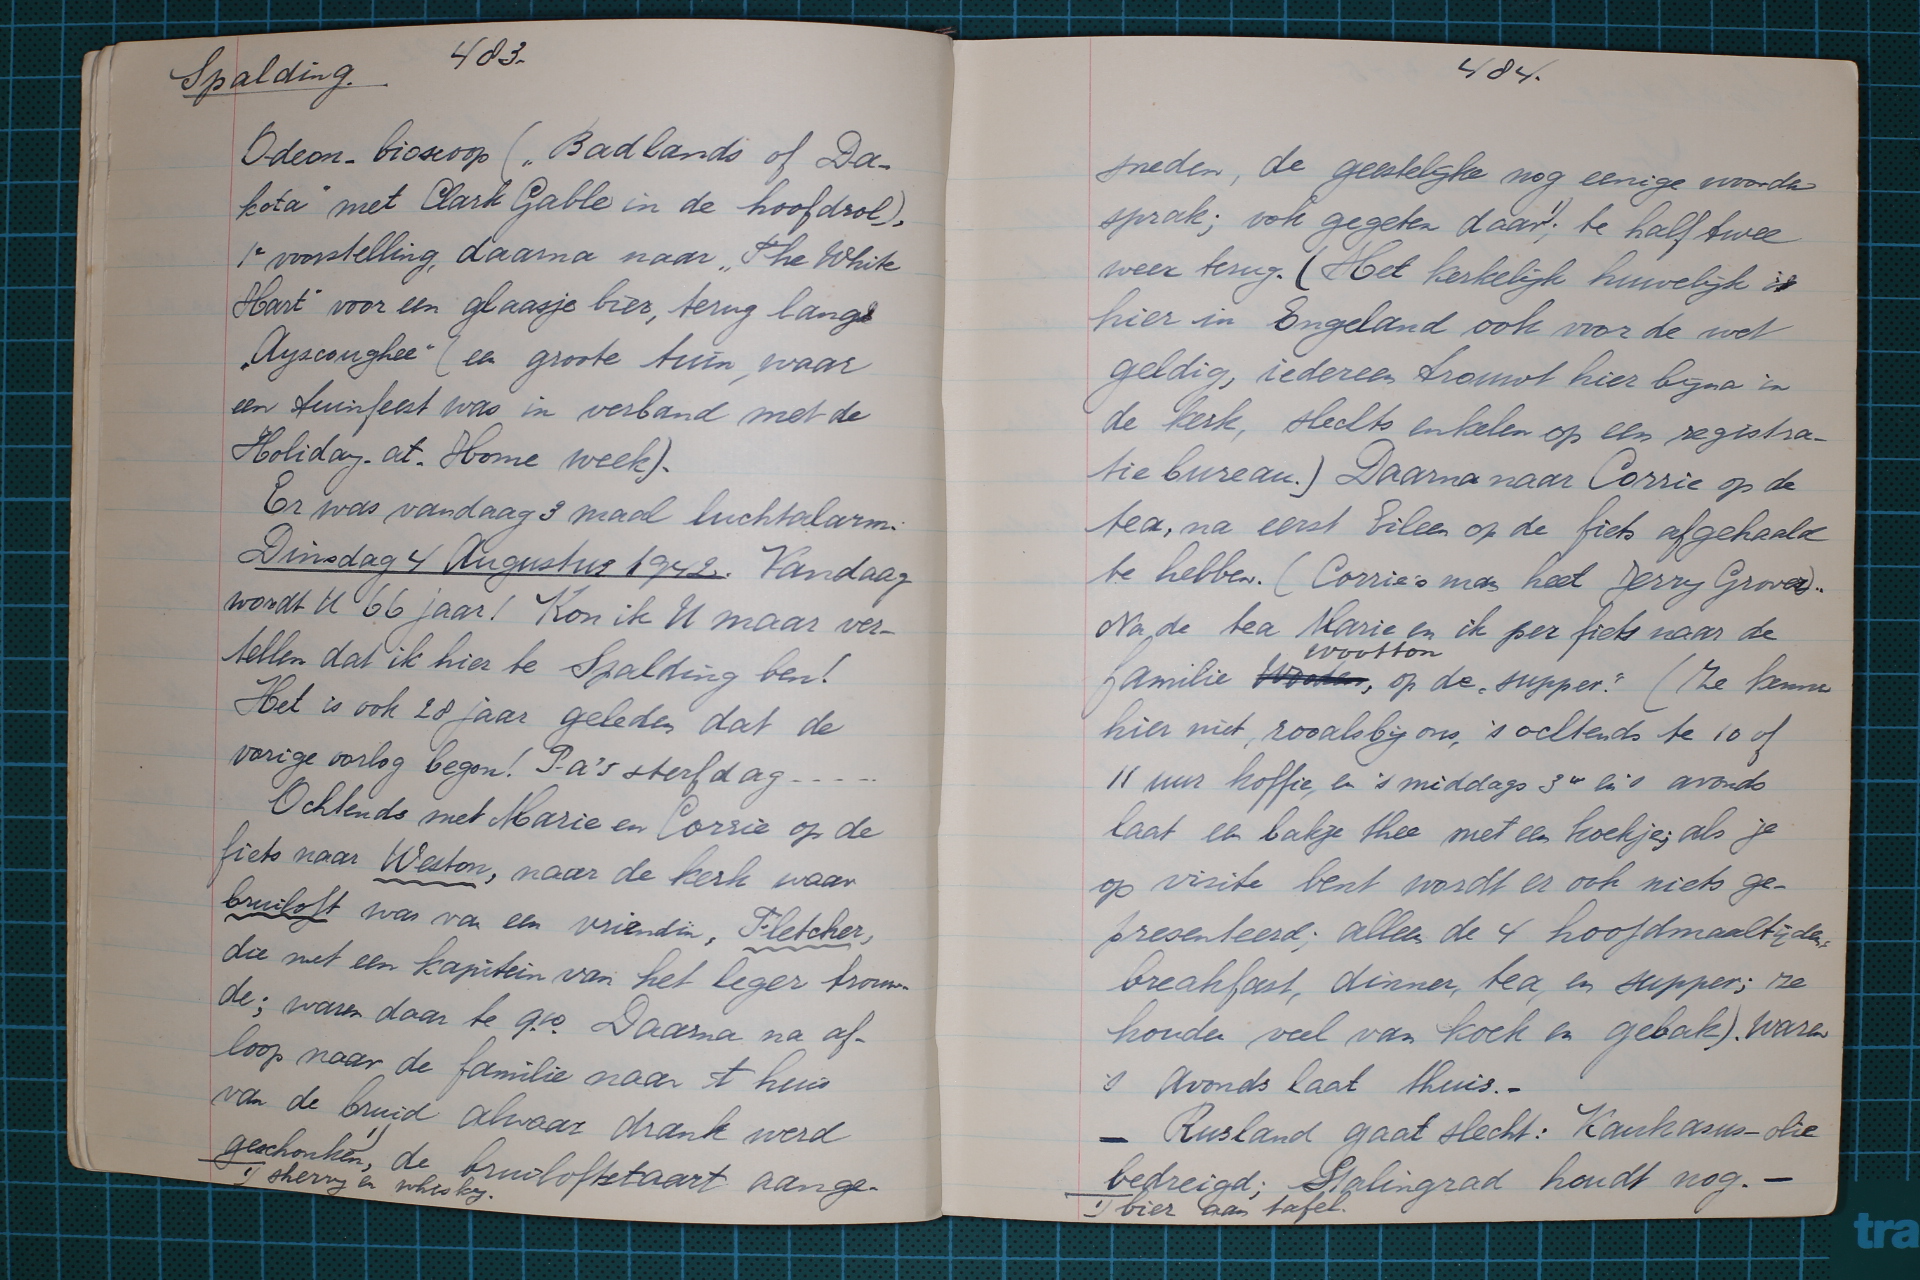 Spalding.
483.
Odeon-bioscoop („Badlands of Da-
kota" met Clark Gable in de hoofdrol),
1e voorstelling, daarna naar „The White
Hart" voor een glaasje bier, terug langs
„Ayscoughee" (een groote tuin, waar
een tuinfeest was in verband met de
Holiday-at-Home week).
Er was vandaag 3 maal luchtalarm.
Dinsdag 4 Augustus 1942. Vandaag
wordt U 66 jaar! Kon ik U maar ver-
tellen dat ik hier te Spalding ben!
Het is ook 28 jaar geleden dat de
vorige oorlog begon! Pa's sterfdag-----
Ochtends met Marie en Corrie op de
fiets naar Weston, naar de kerk waar
bruiloft was van een vriendin, Fletcher,
die met een kapitein van het leger trouw-
de; waren daar te 9.10. Daarna na af-
loop naar de familie naar 't huis
van de bruid alwaar drank werd
geschonken,1) de bruiloftstaart aange-
1) sherry en whisky.
484.
sneden, de geestelijke nog eenige woorden
sprak; ook gegeten daar1); te half twee
weer terug. (Het kerkelijk huwelijk is
hier in Engeland ook voor de wet
geldig, iedereen trouwt hier bijna in
de kerk, slechts enkelen op een registra-
tie bureau.) Daarna naar Corrie op de
tea, na eerst Eileen op de fiets afgehaald
te hebben. (Corrie's man heet Jerry Grover).
Na de tea Marie en ik per fiets naar de
wootton
familie , op de „supper." (Ze kennen
hier niet, zooals bij ons, 's ochtends te 10 of
11 uur koffie, en 's middags 3u en 's avonds
laat een bakje thee met een koekje; als je
op visite bent wordt er ook niets ge-
presenteerd; alleen de 4 hoofdmaaltijden,
breakfast, dinner, tea, en supper; ze
houden veel van koek en gebak). Waren
's avonds laat thuis.-
- Rusland gaat slecht: Kaukasus-olie
bedreigd; Stalingrad houdt nog. -
1) bier aan tafel.
tra